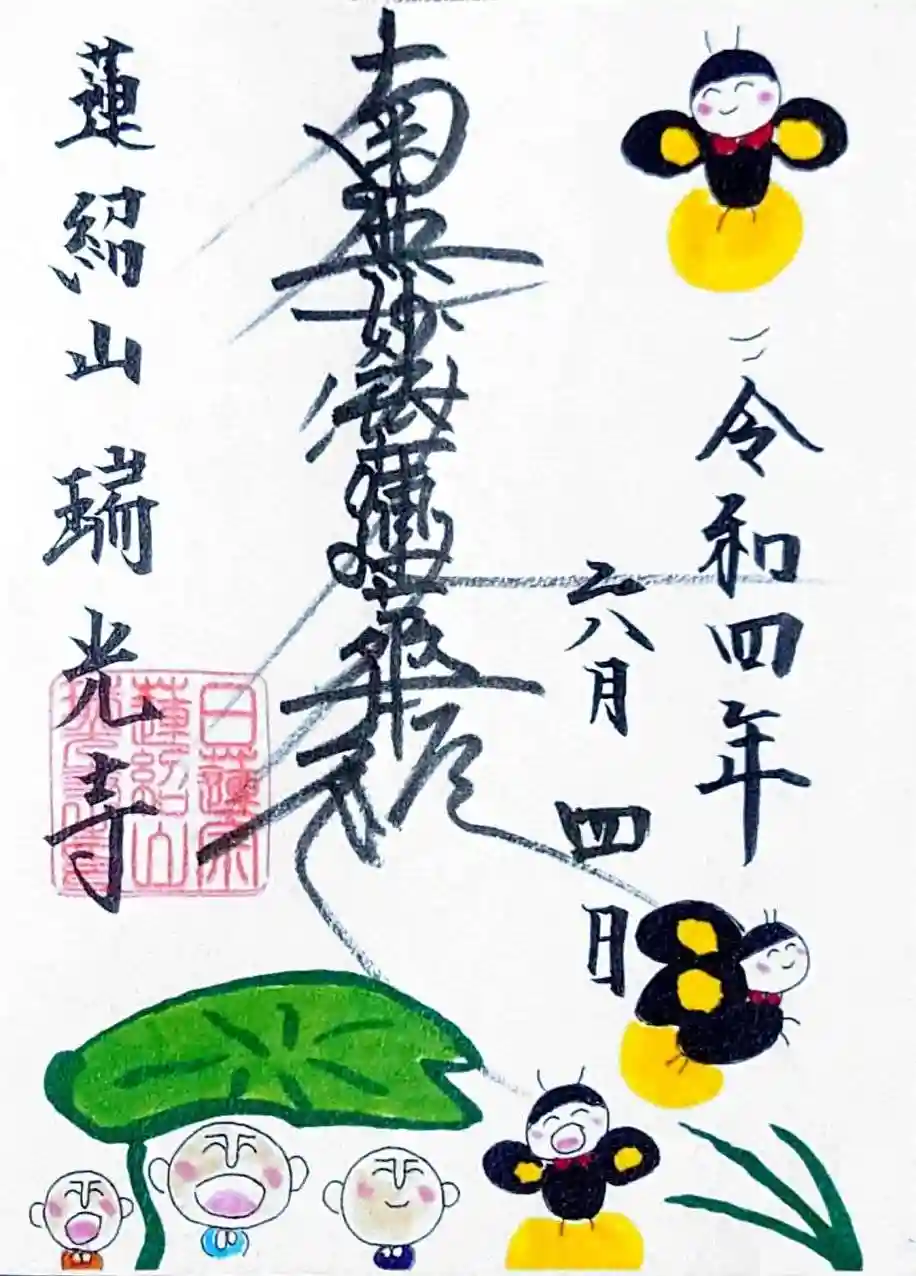 令和四年
六月 四日
南無妙法蓮華経
蓮紹山 瑞光寺
日蓮宗
蓮紹山